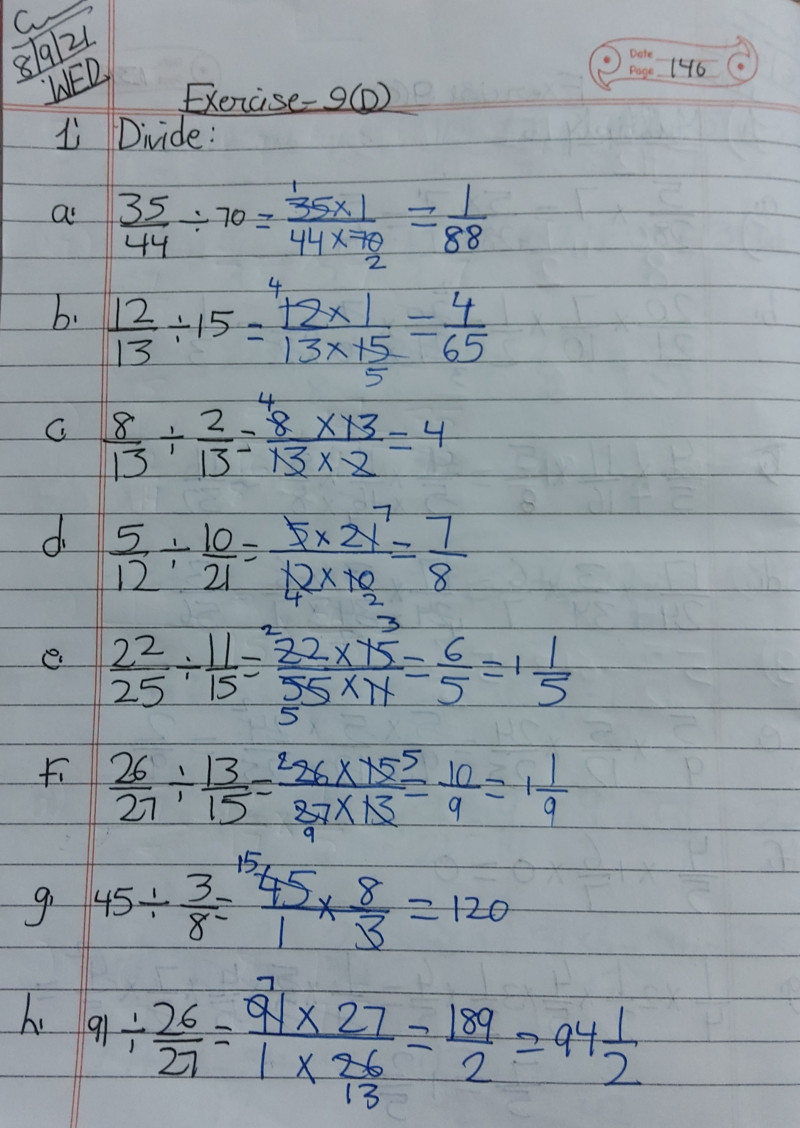 8/9/21
WED
Date
Page 146
Exercise-9(D)
1. Divide:
a. 35/44 ÷ 70 = 35×1/44×70 1 2 = 1/88
b. 12/13 ÷ 15 = 4 12×1/13×15 5 = 4/65
c. 8/13 ÷ 2/13 = 4 8×13/13×2 = 4
d. 5/12 ÷ 10/21 = 5×21 7/12×10 4 2 = 7/8
e. 22/25 ÷ 11/15 = 2 22×15 3/55×11 5 = 6/5 = 1 1/5
f. 26/27 ÷ 13/15 = 2 26×15 5/27×13 9 = 10/9 = 1 1/9
g. 45 ÷ 3/8 = 15 45/1 × 8/3 = 120
h. 91 ÷ 26/27 = 7 91×27/1×26 13 = 189/2 = 94 1/2